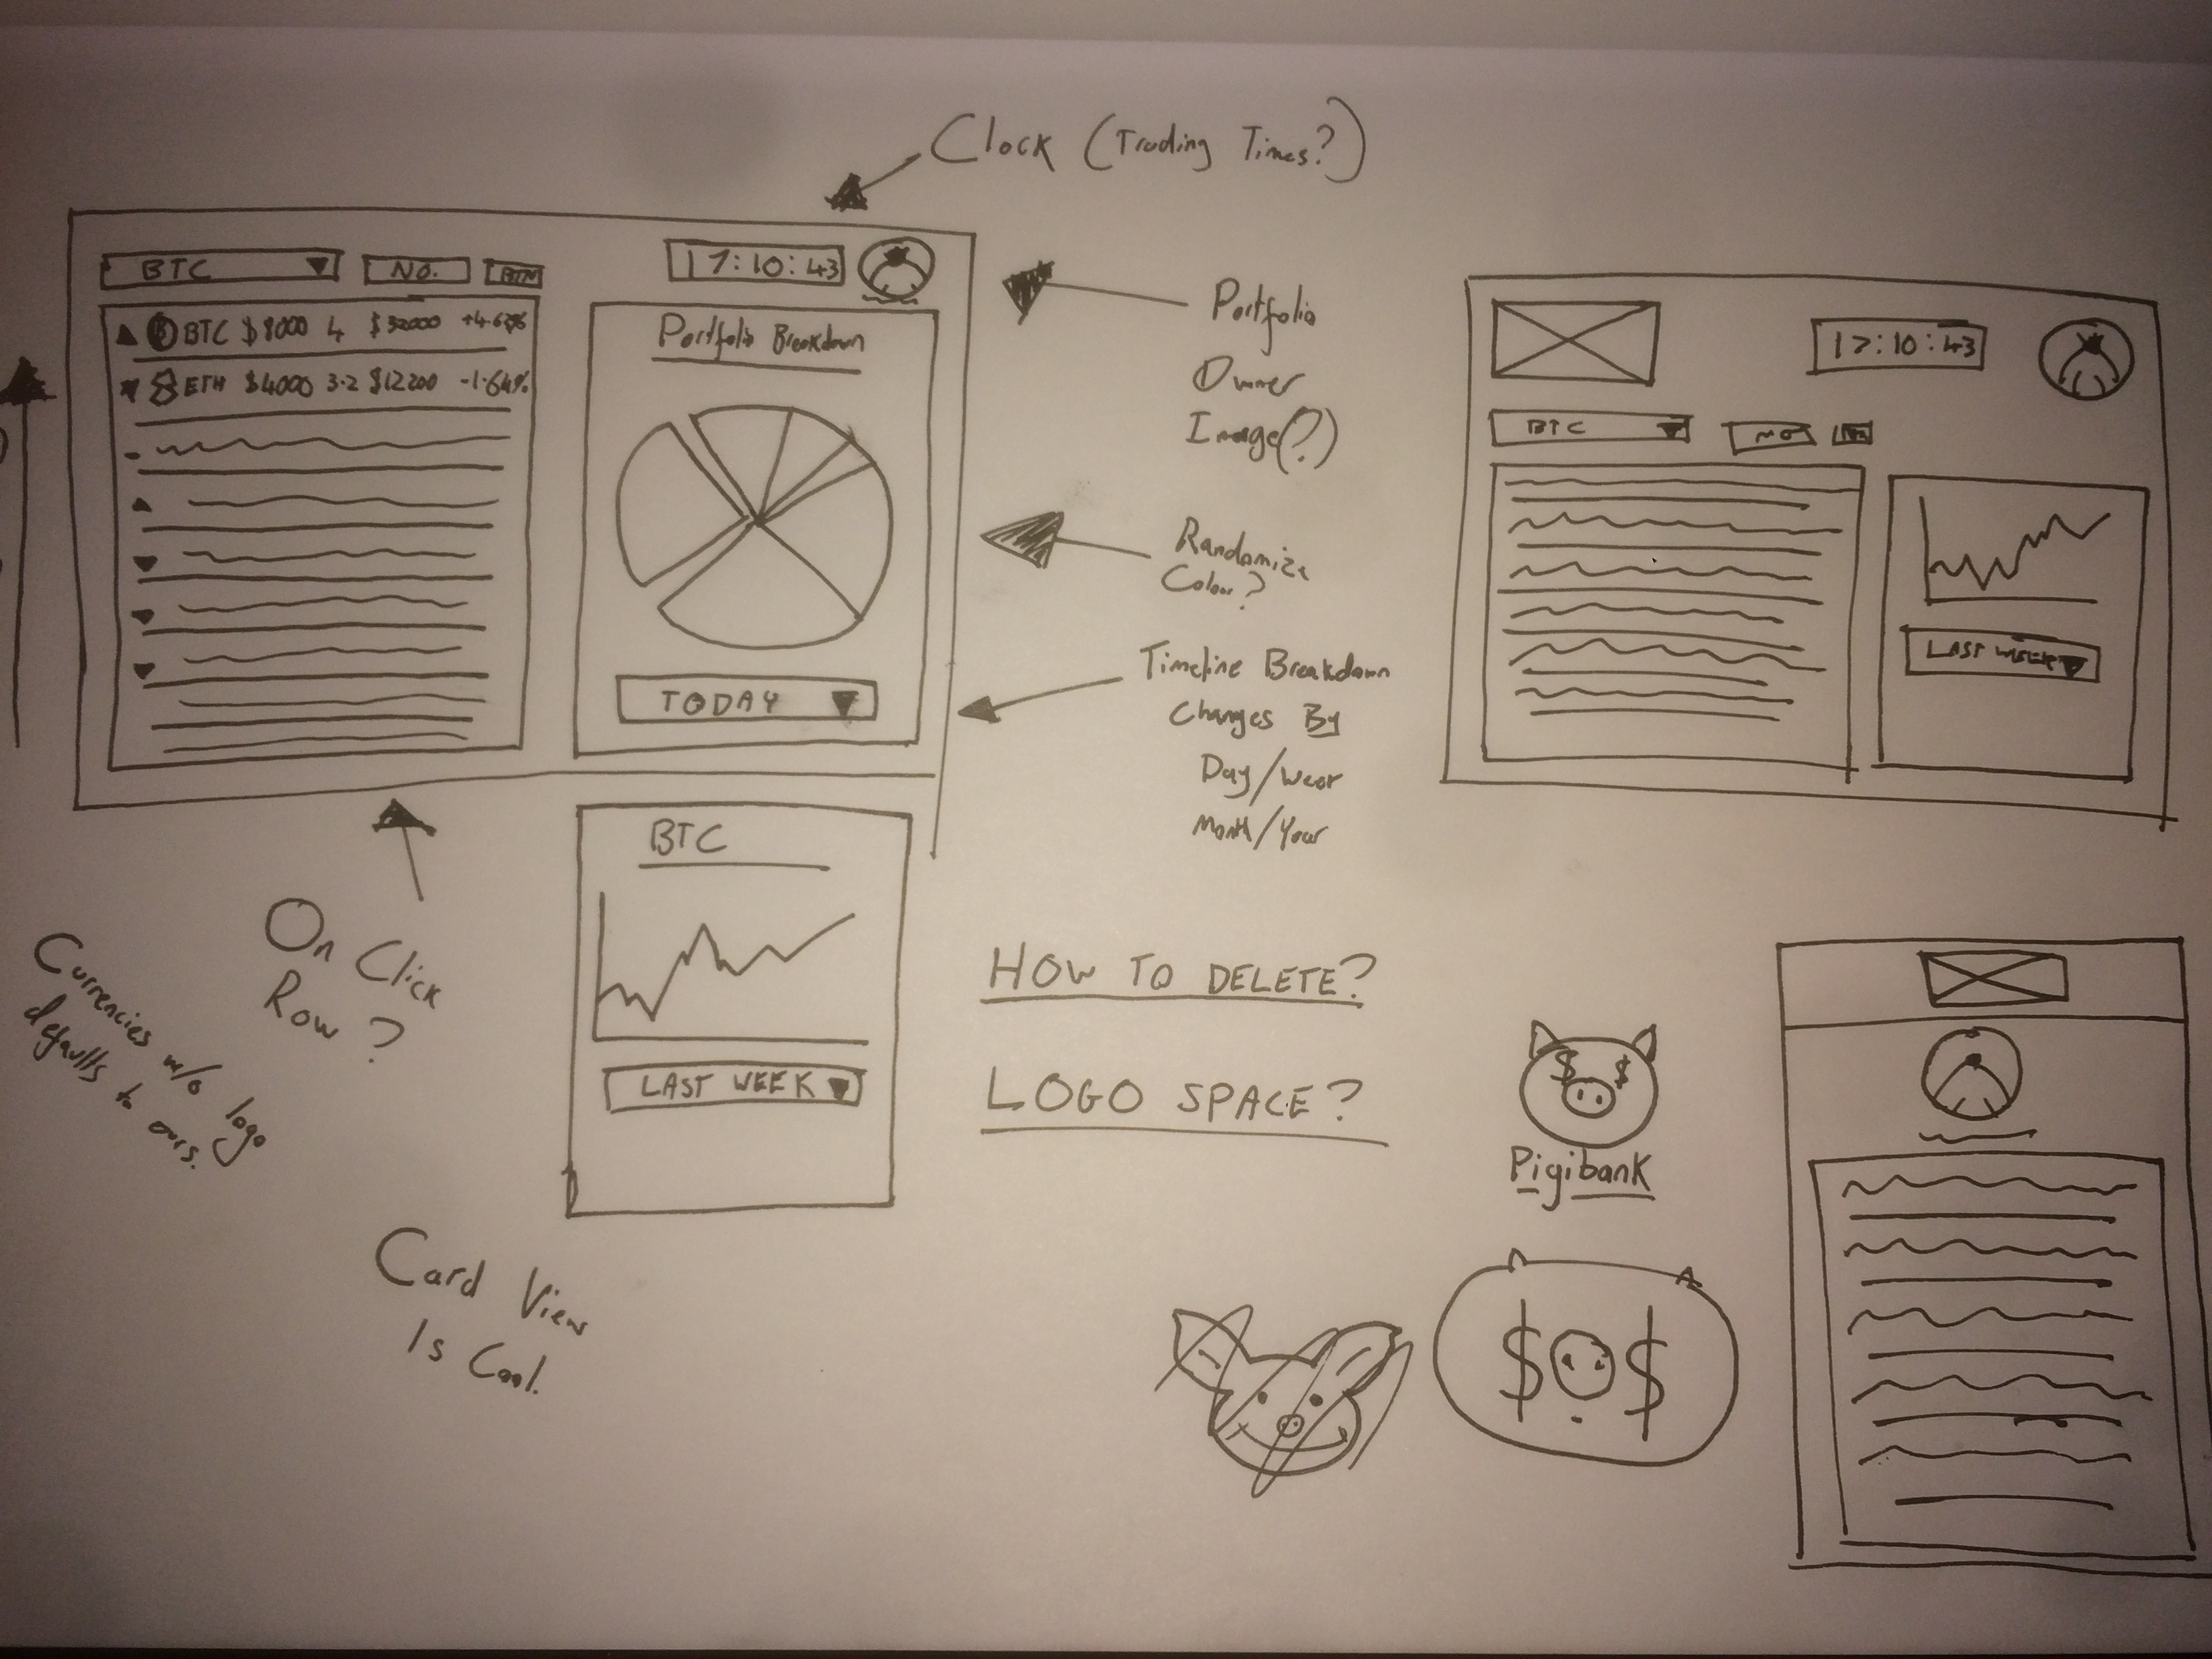 Clock (Trading Times?)
BTC
No.
BTN
17:10:43
BTC $8000 4 $32000
ETH $4000 3.2 $12200 -1.64%
Portfolio Breakdown
TODAY
Portfolio
Owner
Image(?)
Randomize
Colour?
Timeline Breakdown
Changes By
Day/
Month/Year
17:10:43
BTC
NO
LAST WEEK
On Click
Row?
Currencies w/o logo
defaults to ours.
BTC
LAST WEEK
Card View
Is Cool.
HOW TO DELETE?
LOGO SPACE?
$ $
Pigibank
$ $